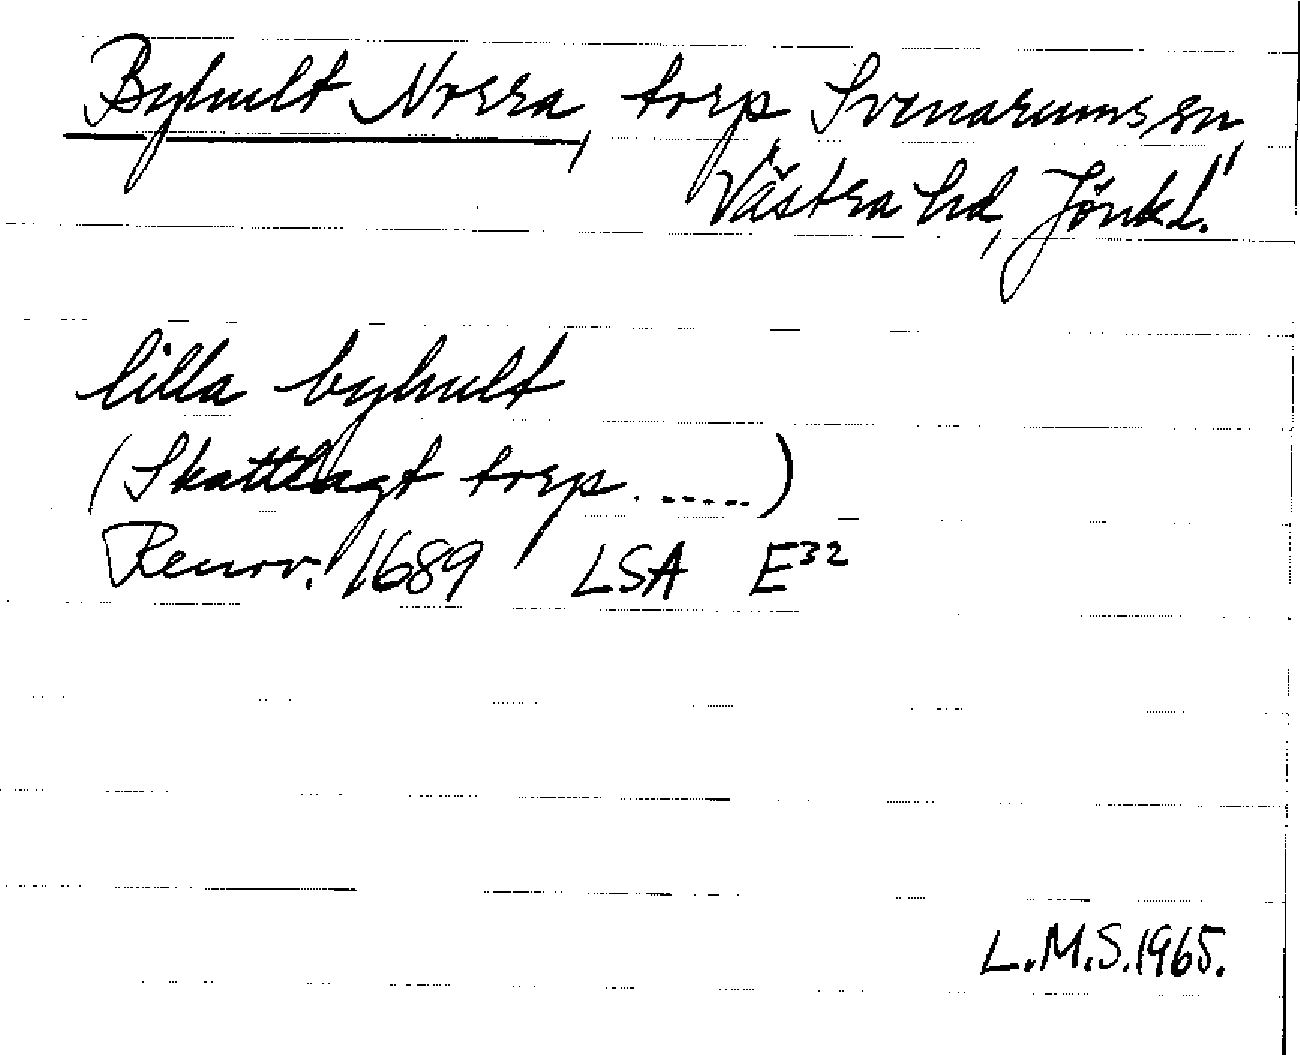 Byhult Norra, torp Svenarums sn,
Västra hd, Jönk.l.
lilla byhult
(Skattlagt torp. .....)
Renov. 1689 LSA E32
L.M.S.1965.